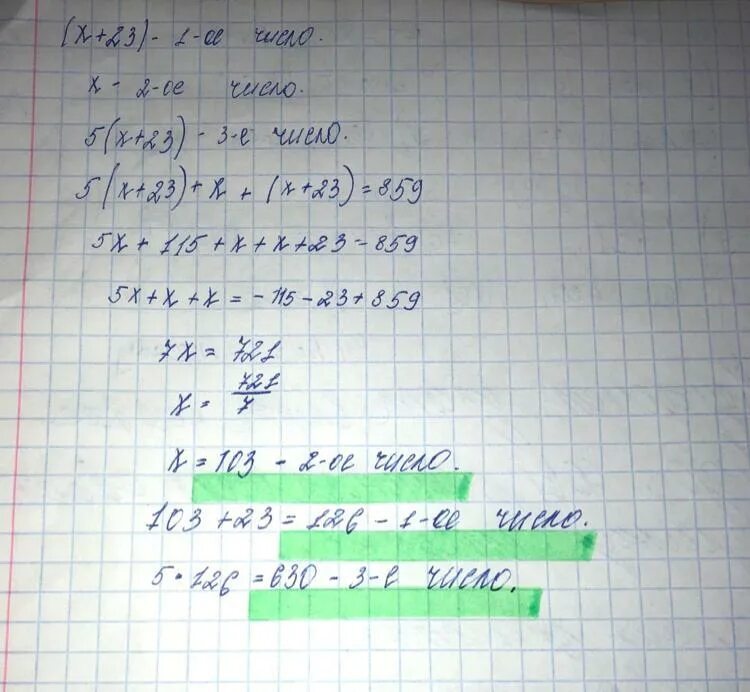 (x+23) - 1-ое число.
x - 2-ое число.
5(x+23) - 3-е число.
5(x+23)+x + (x+23)=859
5x + 115 + x + x + 23 = 859
5x + x + x = - 115 - 23 + 859
7x = 721
x = 721/7
x = 103 - 2-ое число.
103 + 23 = 126 - 1-ое число.
5 • 126 = 630 - 3-е число.